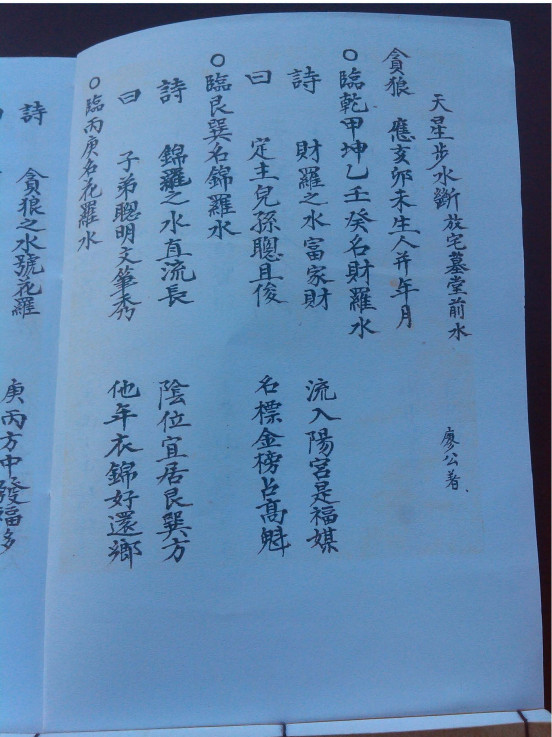 天星步水斷放宅墓堂前水　廖公著
貪狼　應亥卯未生人并年月
○臨乾甲坤乙壬癸名財羅水
詩　財羅之水富家財　流入陽宮是福媒
曰　定主兒孫聰且俊　名標金榜占高魁
○臨艮巽名錦羅水
詩　錦羅之水直流長　陰位宜居艮巽方
曰　子弟聰明文筆秀　他年衣錦好還鄉
○臨丙庚名花羅水
詩　貪狼之水號花羅　庚丙方中發福多